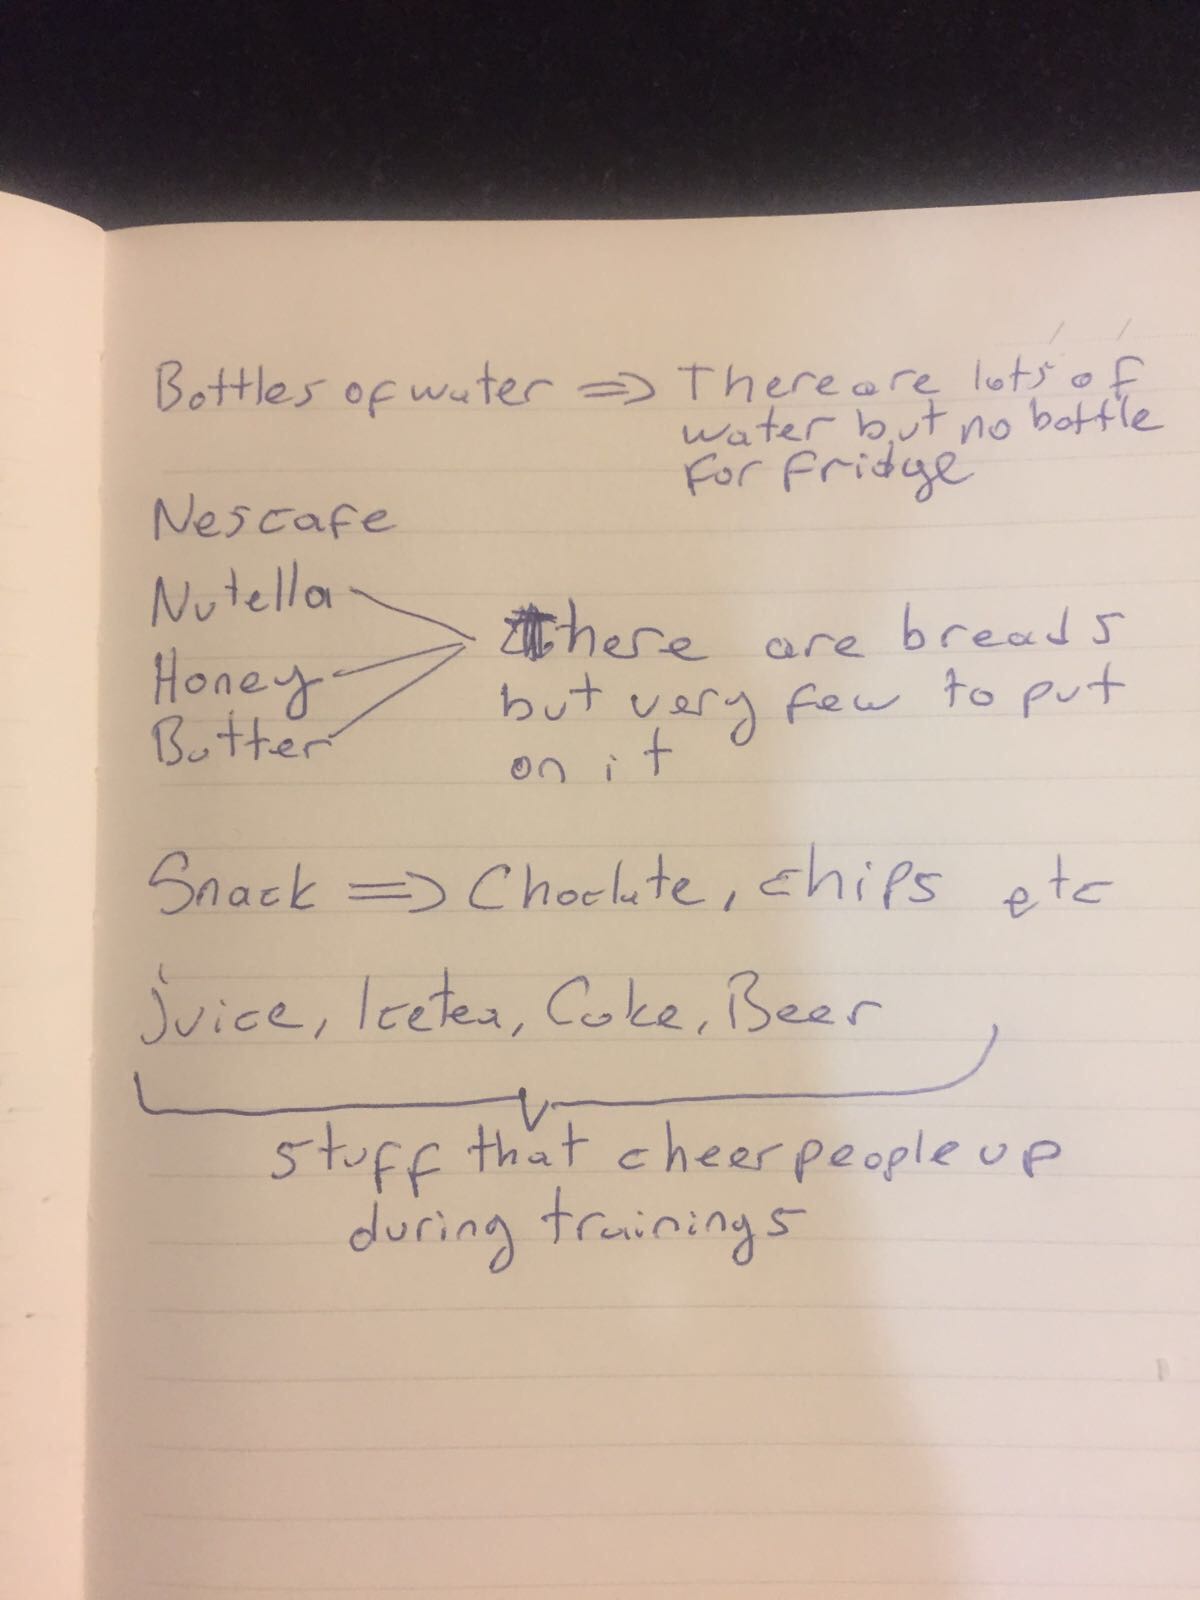 Bottles of water => There are lots of
water but no bottle
for fridge
Nescafe
Nutella
Honey
Butter
there are breads
but very few to put
on it
Snack => Choclate, chips etc
juice, Icetea, Coke, Beer
stuff that cheer people up
during trainings